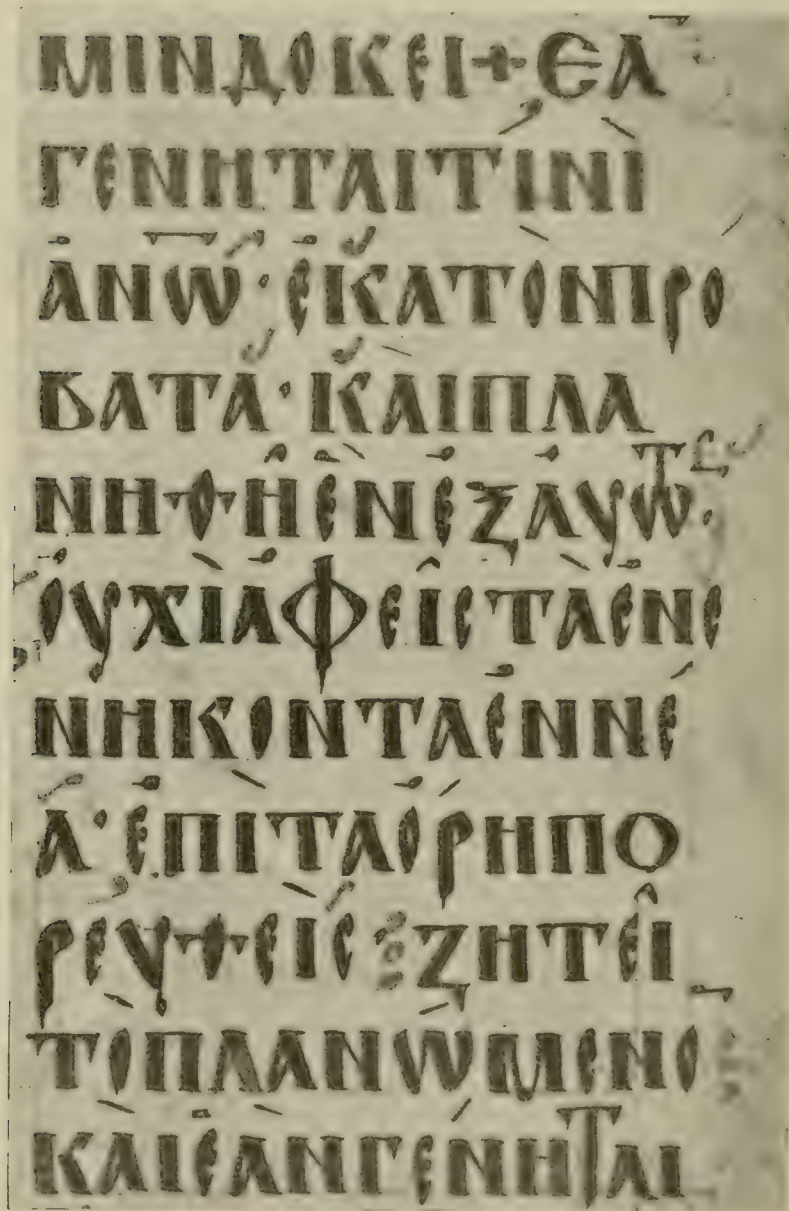 ΜΙΝΔΟΚΕΙ+ΕΑ̅
ΓΕΝΗΤΑΙΤΙΝΙ
ΑΝ̅Ω̅·ΕΚΑΤΟΝΠΡΟ
ΒΑΤΑ·ΚΑΙΠΛΑ
ΝΗΘΗΕΝΕΞΑΥΤΩ·
ΟΥΧΙΑΦΕΙϹΤΑΕΝΕ
ΝΗΚΟΝΤΑΕΝΝΕ
Α·ΕΠΙΤΑΟΡΗΠΟ
ΡΕΥΘΕΙϹ ΖΗΤΕΙ
ΤΟΠΛΑΝΩΜΕΝΟ̅
ΚΑΙΕΑΝΓΕΝΗΤΑΙ